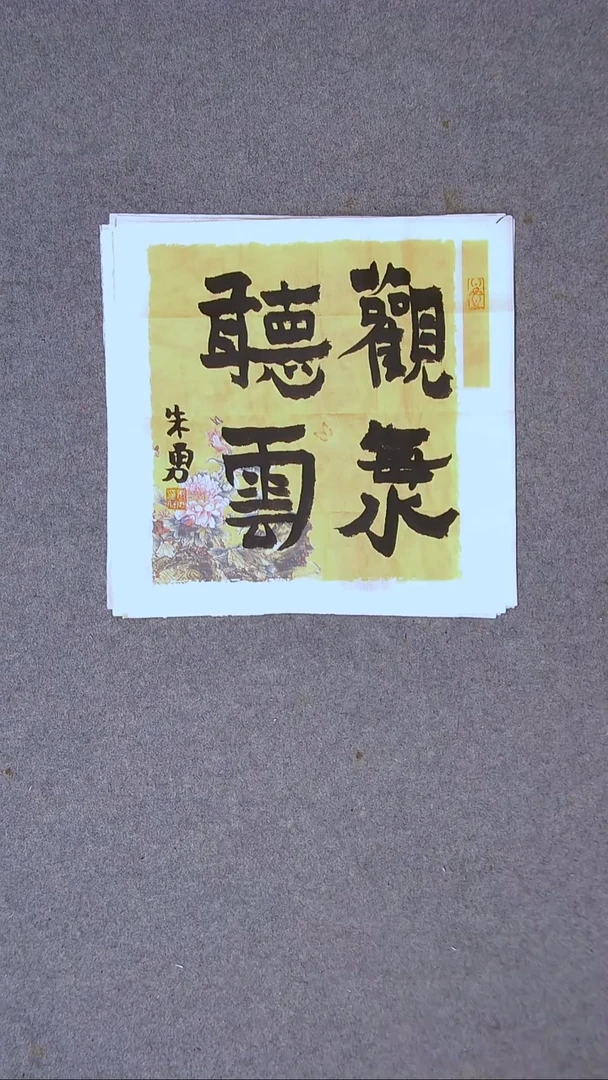 觀海
聽雲
朱勇